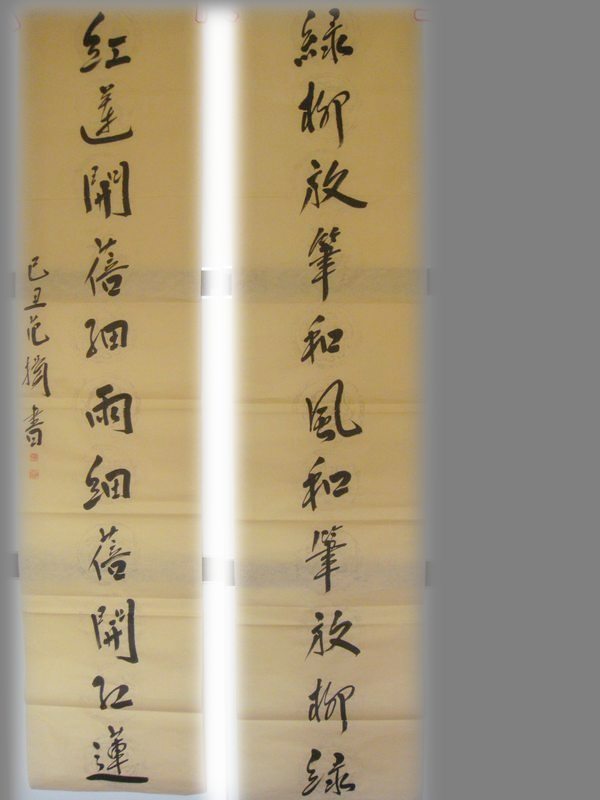 綠柳放筆和風和筆放柳綠
紅蓮開蓓細雨細蓓開紅蓮
己丑范書